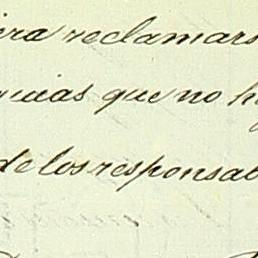 era reclamars
ncias que no h
de los responsab